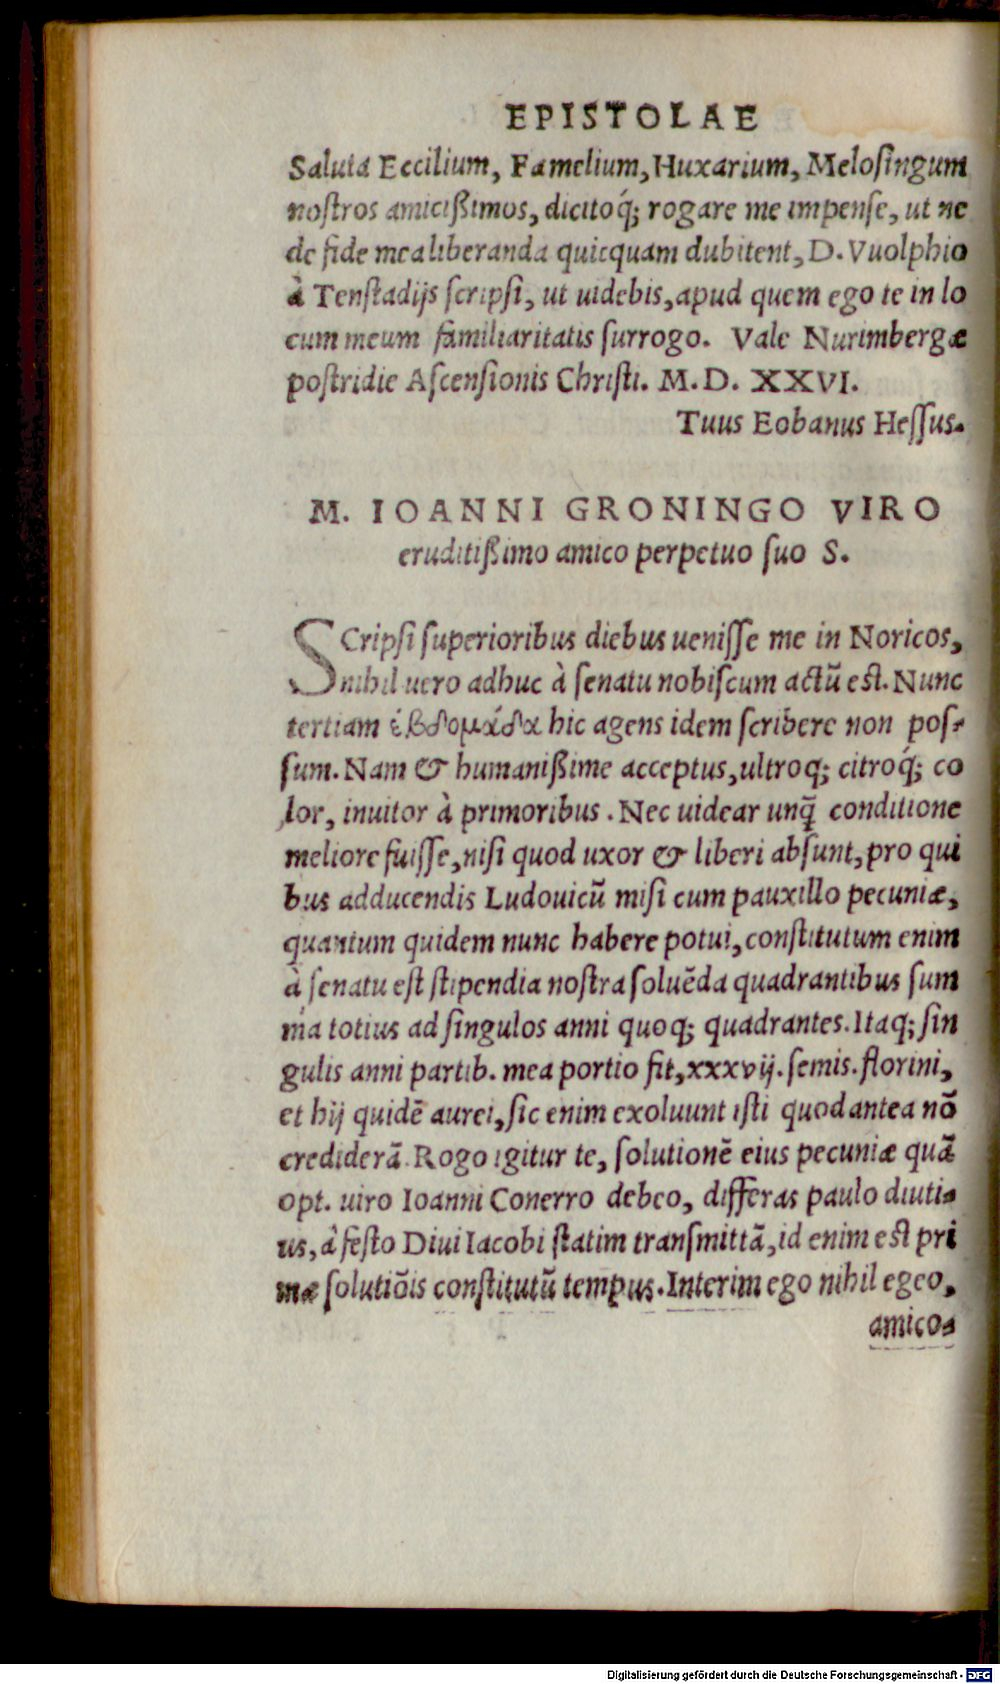 EPISTOLAE
Saluta Eccilium, Famelium, Huxarium, Melosingum
nostros amicißimos, dicitoq́; rogare me impense, ut ne
de fide mea liberanda quicquam dubitent, D. Vuolphio
à Tenstadijs scripsi, ut uidebis, apud quem ego te in lo
cum meum familiaritatis surrogo. Vale Nurimbergæ
postridie Ascensionis Christi. M. D. XXVI.
Tuus Eobanus Hessus.
M. IOANNI GRONINGO VIRO
eruditißimo amico perpetuo suo S.
SCripsi superioribus diebus uenisse me in Noricos,
nihil uero adhuc à senatu nobiscum actũ est. Nunc
tertiam ἑβδομάδα hic agens idem scribere non pos-
sum. Nam & humanißime acceptus, ultroq; citroq́; co
lor, inuitor à primoribus. Nec uidear unq̃ conditione
meliore fuisse, nisi quod uxor & liberi absunt, pro qui
bus adducendis Ludouicũ misi cum pauxillo pecuniæ,
quantum quidem nunc habere potui, constitutum enim
à senatu est stipendia nostra soluẽda quadrantibus sum
ma totius ad singulos anni quoq; quadrantes. Itaq; sin
gulis anni partib. mea portio fit, xxxvij. semis. florini,
et hij quidẽ aurei, sic enim exoluunt isti quod antea nõ
crediderã. Rogo igitur te, solutionẽ eius pecuniæ quã
opt. uiro Ioanni Conerro debeo, differas paulo diuti-
us, à festo Diui Iacobi statim transmittã, id enim est pri
mæ solutiõis constitutũ tempus. Interim ego nihil egeo,
amico-
Digitalisierung gefördert durch die Deutsche Forschungsgemeinschaft - DFG